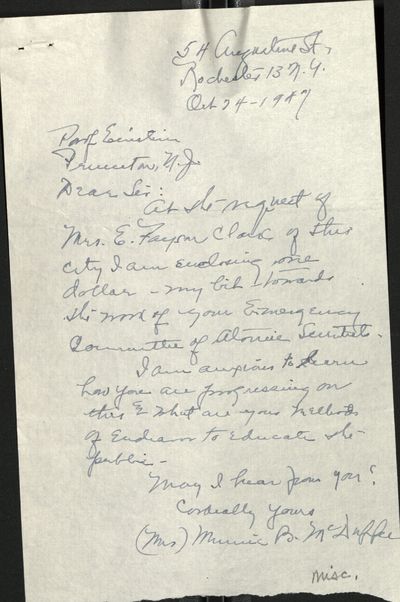 54 Augustine St,
Rochester 13 N.Y.
Oct 24-1947
Prof Einstein
Princeton, N.J.
Dear Sir:
At the request of
Mrs. E. Fayson Clark of this
city I am enclosing one
dollar - my bit towards
the work of your Emergency
Committee of Atomic Scientists.
I am anxious to learn
how you are progressing on
this & what are your methods
of Endeavor to Educate the
public -
May I hear from you?
Cordially yours
(Mrs) Minnie B. McDuffee
misc.